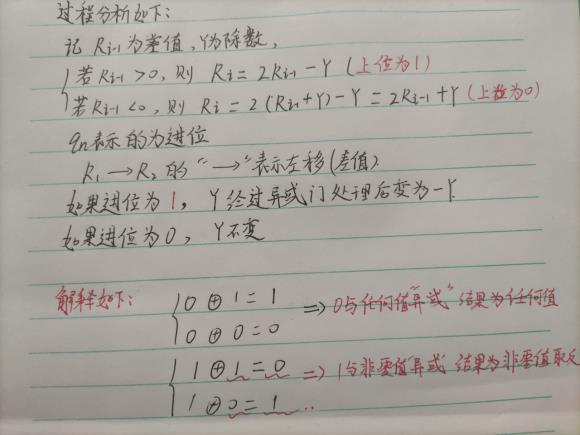 过程分析如下：
记 Ri-1 为差值，Y为除数，
若Ri-1 >0，则 Ri = 2Ri-1 - Y (上位为1)
若Ri-1 <0，则 Ri = 2(Ri-1+Y) - Y = 2Ri-1+Y (上位为0)
qn表示的为进位
R1 → R2 的 "→" 表示左移(差值)
如果进位为1，Y经过异或门处理后变为-Y
如果进位为0，Y不变
解释如下：
0 ⊕ 1 = 1 => 0与任何值"异或"结果为任何值
0 ⊕ 0 = 0
1 ⊕ 1 = 0 => 1与非零值"异或"结果为非零值取反
1 ⊕ 0 = 1